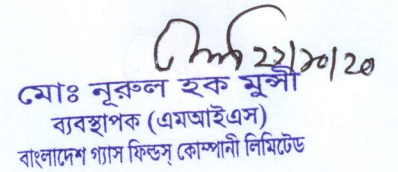 ২২/১০/২০
মোঃ নূরুল হক মুন্সী
ব্যবস্থাপক (এমআইএস)
বাংলাদেশ গ্যাস ফিল্ডস্ কোম্পানী লিমিটেড